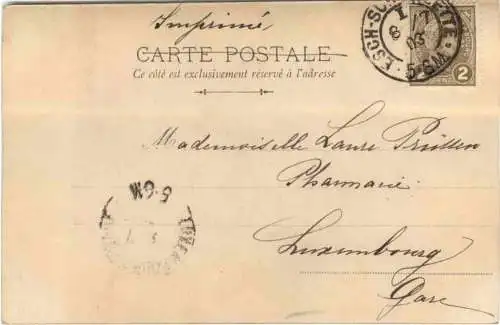 Imprimé
CARTE POSTALE
Ce côté est exclusivement réservé à l'adresse
ESCH-SUR-
8 7
03
5-6M
2
Mademoiselle Laure Prüssen
Pharmacie
Luxembourg
Gare
5-6M